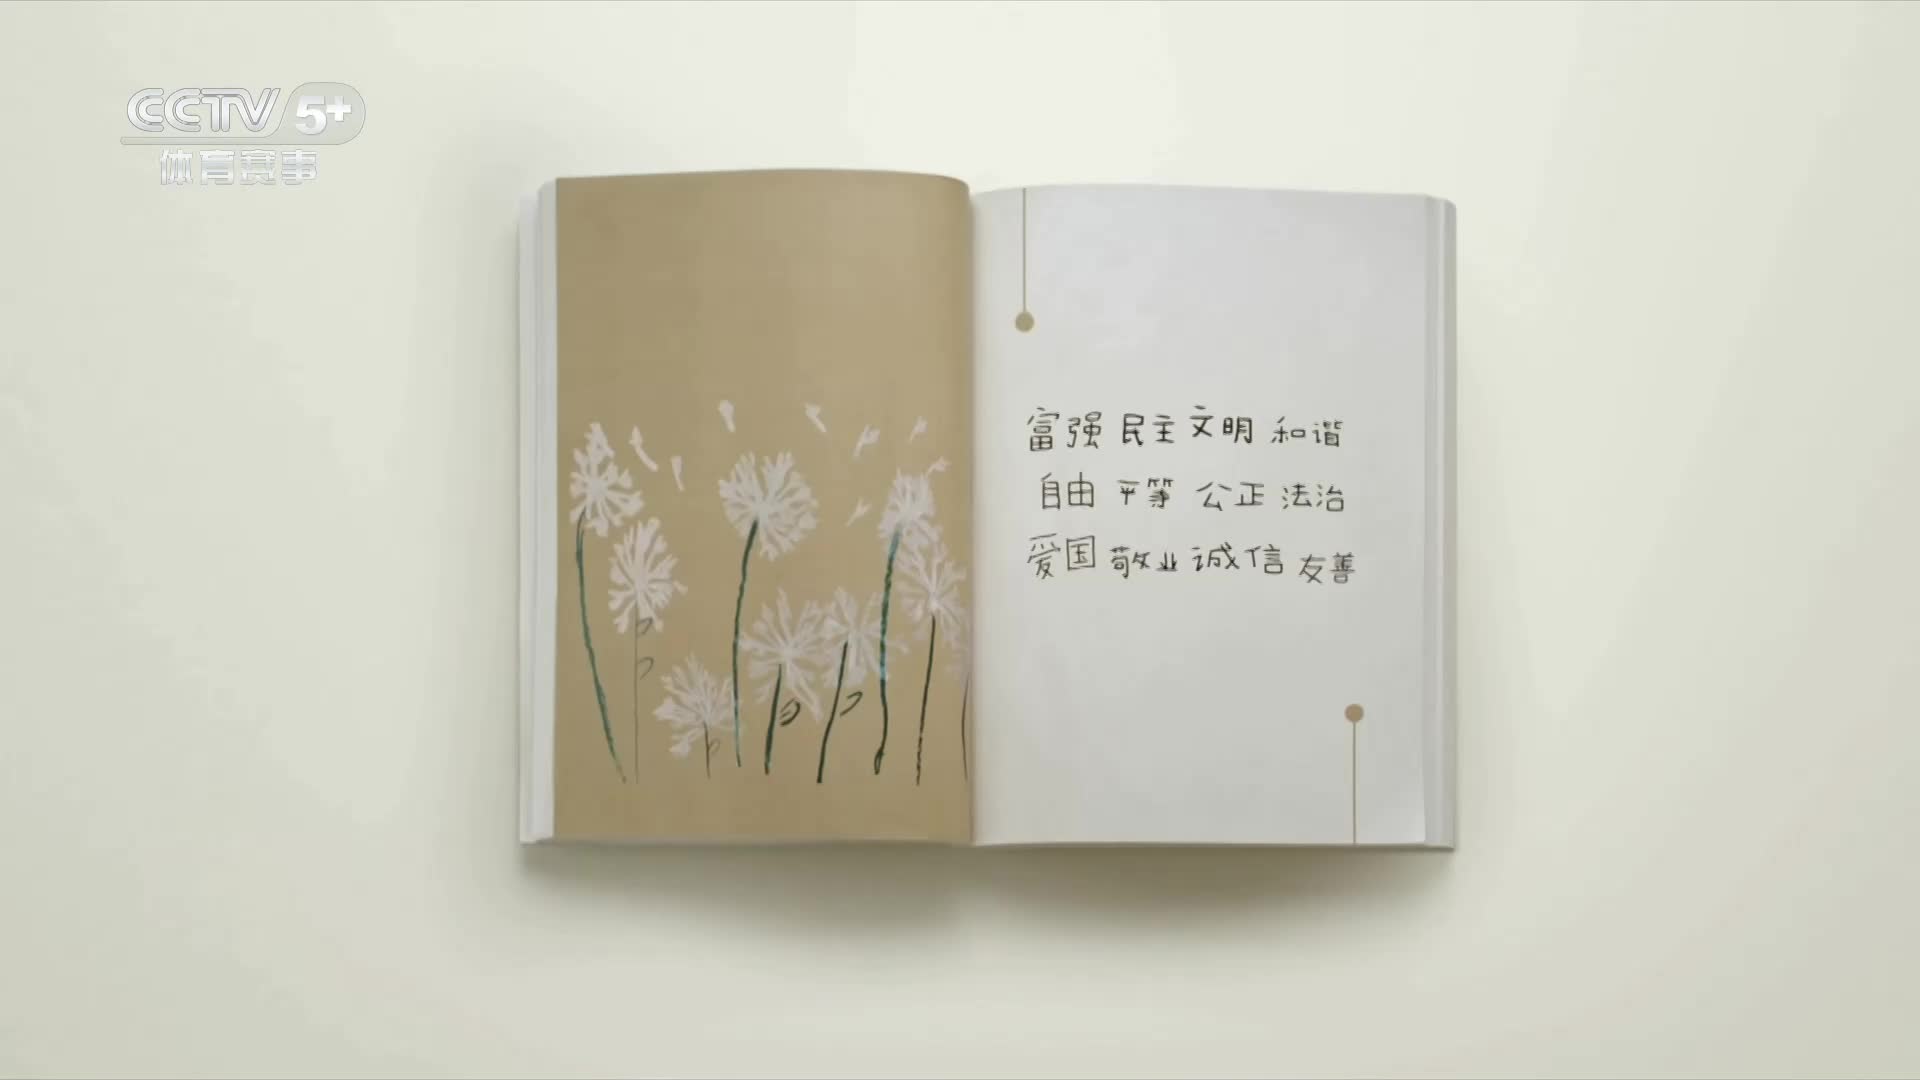 CCTV 5+
体育赛事
富强 民主 文明 和谐
自由 平等 公正 法治
爱国 敬业 诚信 友善